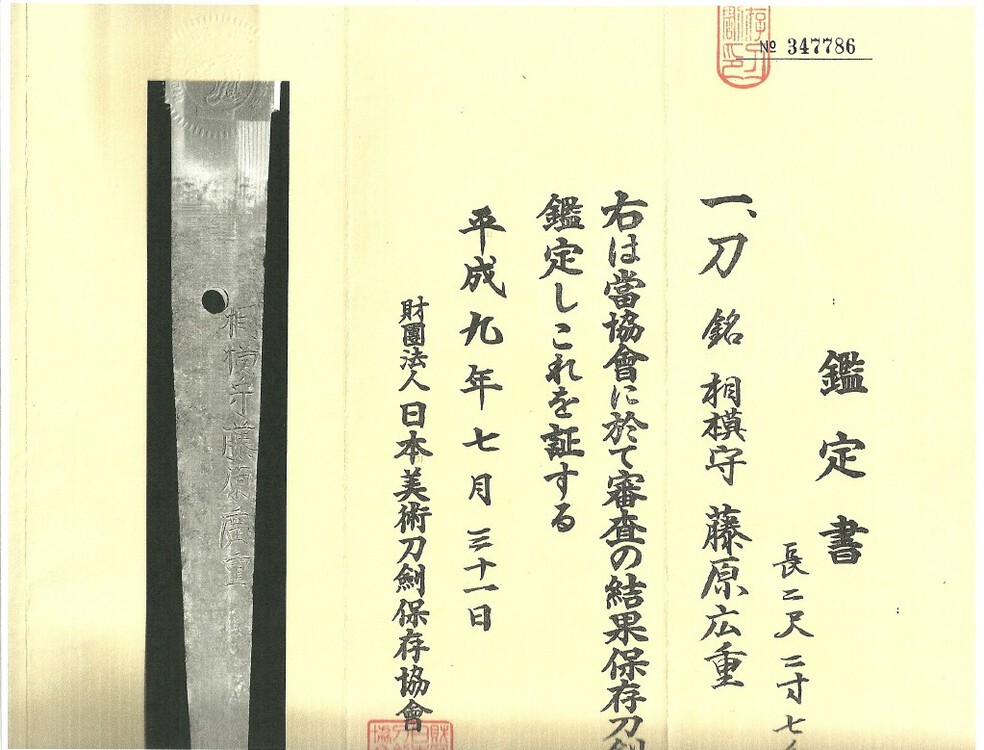 № 347786
鑑定書
長二尺二寸七
一、刀 銘 相模守 藤原広重
右は當協會に於て審査の結果保存刀剣
鑑定しこれを証する
平成九年七月三十一日
財團法人日本美術刀剣保存協會
相模守藤原廣重